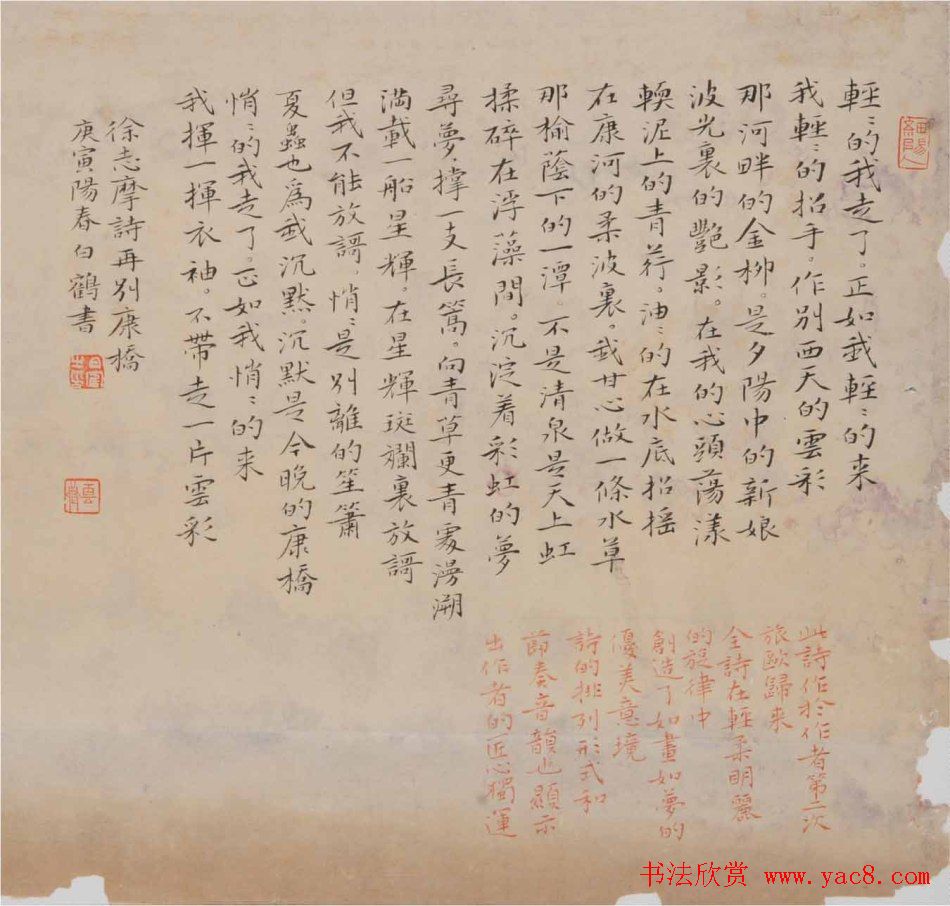 輕〻的我走了。正如我輕〻的来
我輕〻的招手。作別西天的雲彩
那河畔的金柳。是夕陽中的新娘
波光裏的艷影。在我的心頭蕩漾
輭泥上的青荇。油〻的在水底招搖
在康河的柔波裏。我甘心做一條水草
那榆蔭下的一潭。不是清泉是天上虹
揉碎在浮藻間。沉淀着彩虹的夢
尋夢。撑一支長篙。向青草更青處漫溯
滿載一船星輝。在星輝斑斕裏放謌
但我不能放謌。悄〻是別離的笙簫
夏蟲也爲我沉默。沉默是今晚的康橋
悄〻的我走了。正如我悄〻的来
我揮一揮衣袖。不帶走一片雲彩
徐志摩詩再別康橋
庚寅陽春白鶴書
此詩作於作者第二次
旅歐歸来
全詩在輕柔明麗
的旋律中
創造了如畫如夢的
優美意境
詩的排列形式和
節奏音韻也顯示
出作者的匠心獨運
书法欣赏 www.yac8.com